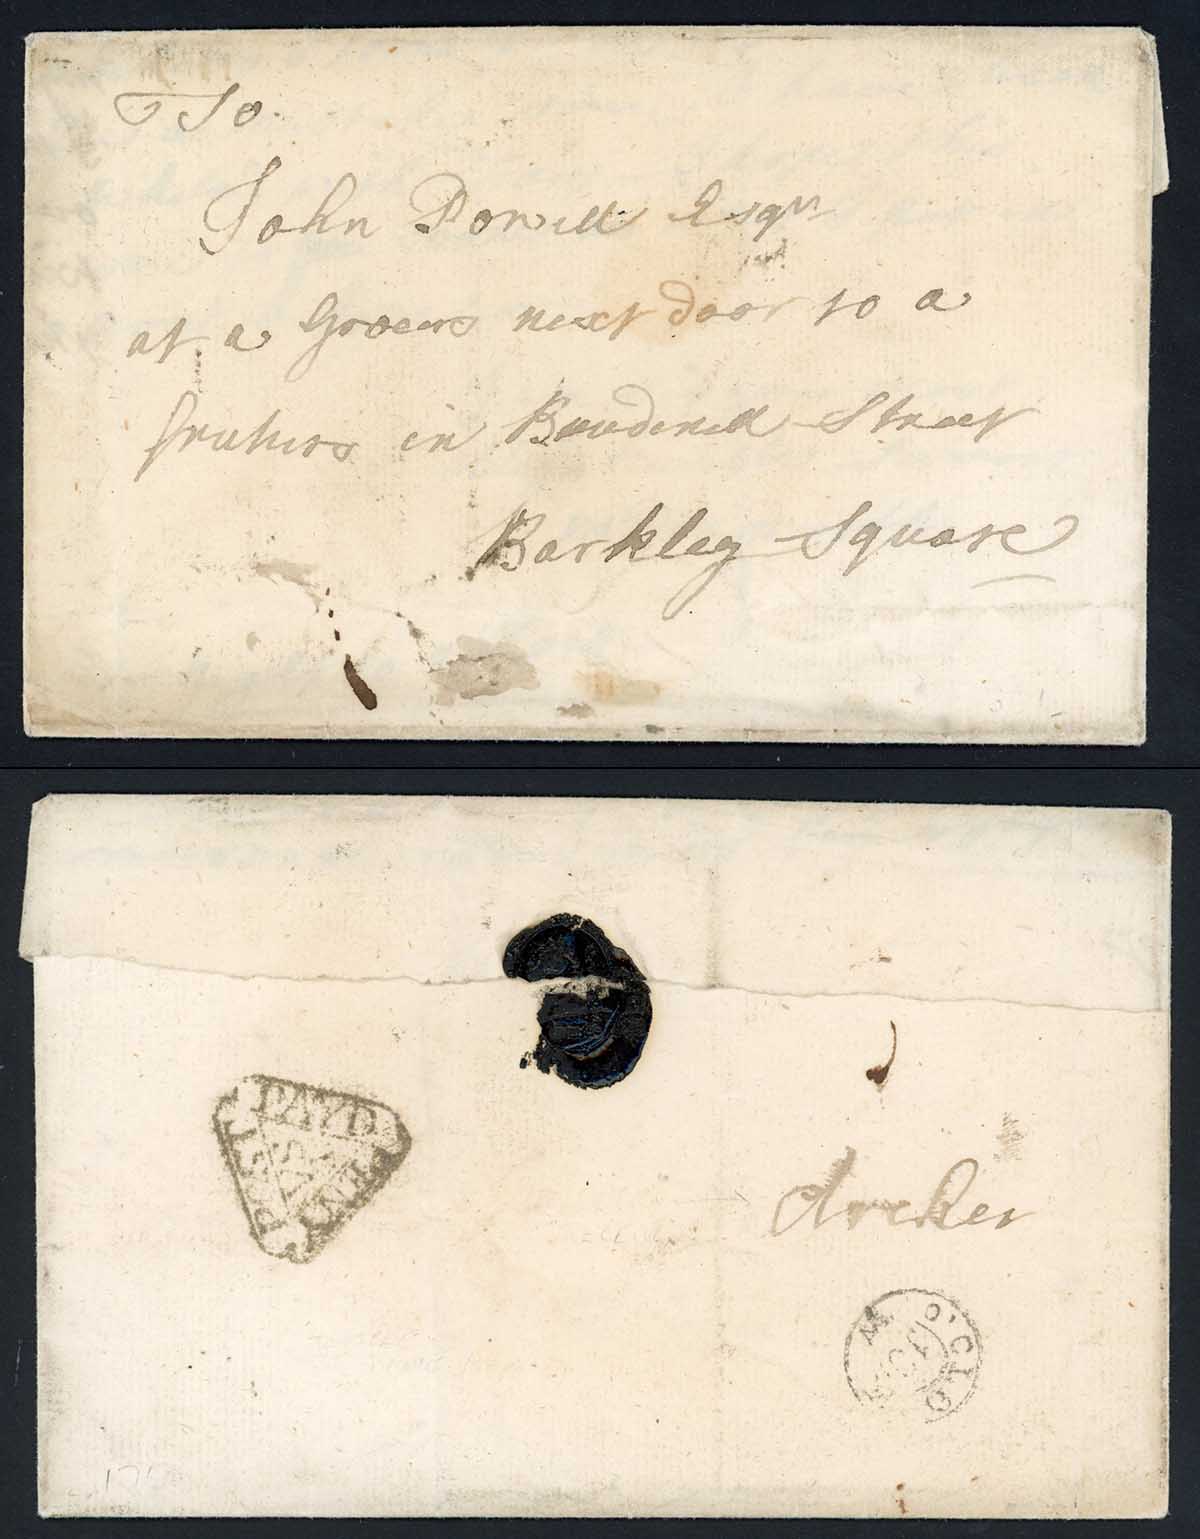 To
John Powell Esqr
at a Grocers next door to a
fruters in Brudenell Street
Barkley Square
PENY
POST
PAYD
Archer
O'CLO